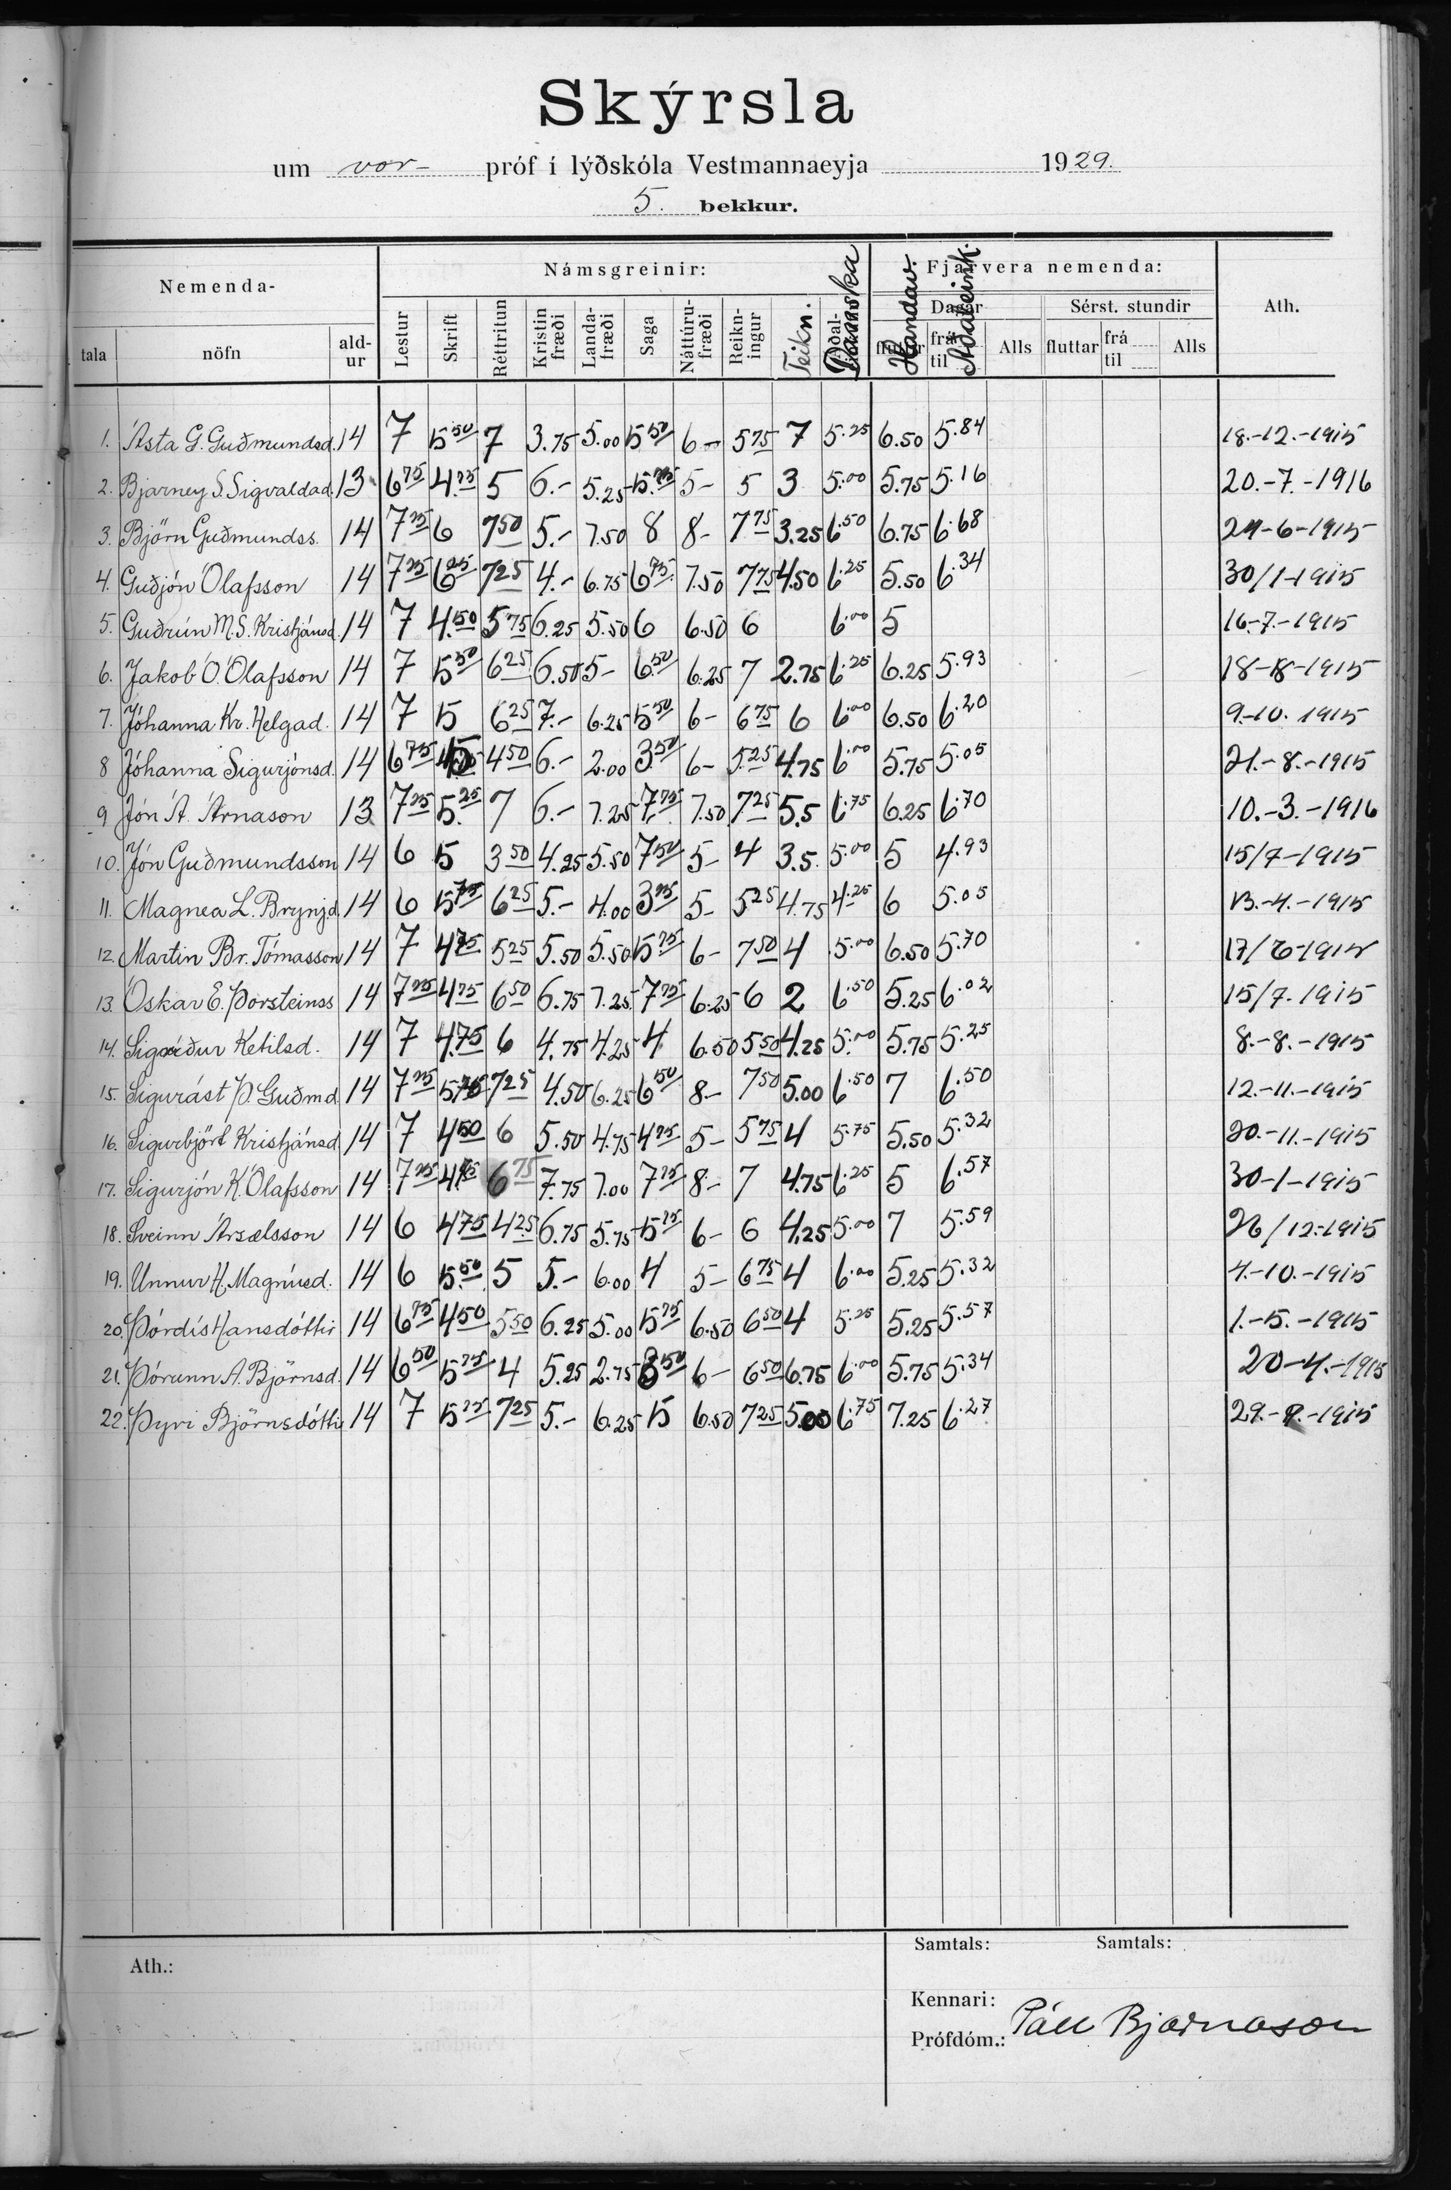 Skýrsla
um vor- próf í lýðskóla Vestmannaeyja 1929.
5. bekkur.
Nemenda- Námsgreinir: Fjarvera nemenda: Ath.
tala nöfn ald-ur Lestur Skrift Réttritun Kristin fræði Landa-fræði Saga Náttúru-fræði Reikn-ingur Teikn. Danska Handav. Aðaleink. Dagar fluttar frá til Alls Sérst. stundir fluttar frá til Alls
1. Ásta G. Guðmundsd. 14 7 5.50 7 3.75 5.00 5.50 6- 5.75 7 5.25 6.50 5.84 18.-12.-1915
2. Bjarney S. Sigvaldad. 13 6.75 4.75 5 6.- 5.25 5.75 5- 5 3 5.00 5.75 5.16 20.-7.-1916
3. Björn Guðmundss. 14 7.25 6 7.50 5.- 7.50 8 8- 7.75 3.25 6.50 6.75 6.68 29-6-1915
4. Guðjón Ólafsson 14 7.25 6.25 7.25 4.- 6.75 6.75 7.50 7.75 4.50 6.25 5.50 6.34 30/1-1915
5. Guðrún M.S. Kristjánsd. 14 7 4.50 5.75 6.25 5.50 6 6.50 6 6.00 5 16.-7.-1915
6. Jakob Ó. Ólafsson 14 7 5.50 6.25 6.50 5- 6.50 6.25 7 2.75 6.25 6.25 5.93 18-8-1915
7. Jóhanna Kr. Helgad. 14 7 5 6.25 7.- 6.25 5.50 6- 6.75 6 6.00 6.50 6.20 9.-10. 1915
8 Jóhanna Sigurjónsd. 14 6.75 4.50 6.- 2.00 3.50 6- 5.25 4.75 6.00 5.75 5.05 21.-8.-1915
9 Jón Á. Árnason 13 7.25 5.25 7 6.- 7.25 7.75 7.50 7.25 5.5 6.75 6.25 6.70 10.-3.-1916
10. Jón Guðmundsson 14 6 5 3.50 4.25 5.50 7.50 5- 4 3.5. 5.00 5 4.93 15/7-1915
11. Magnea L. Brynjd. 14 6 5.75 6.25 5.- 4.00 3.25 5- 5.25 4.75 4.25 6 5.05 13.-4.-1915
12. Martin Br. Tómasson 14 7 4.75 5.25 5.50 5.50 5.75 6- 7.50 4 5.00 6.50 5.70 17/6-1915
13. Óskar E. Þorsteinss 14 7.25 4.75 6.50 6.75 7.25 7.75 6.25 6 2 6.50 5.25 6.02 15/7. 1915
14. Sigríður Ketilsd. 14 7 4.75 6 4.75 4.25 4 6.50 5.50 4.25 5.00 5.75 5.25 8.-8.-1915
15. Sigurást Þ. Guðmd. 14 7.25 5.75 7.25 4.50 6.25 6.50 8.- 7.50 5.00 6.50 7 6.50 12.-11.-1915
16. Sigurbjört Kristjánsd. 14 7 4.50 6 5.50 4.75 4.75 5- 5.75 4 5.75 5.50 5.32 20.-11.-1915
17. Sigurjón K. Ólafsson 14 7.25 4.75 6.75 7.75 7.00 7.75 8.- 7 4.75 6.25 5 6.57 30-1-1915
18. Sveinn Ársælsson 14 6 4.75 4.25 6.75 5.75 5.75 6- 6 4.25 5.00 7 5.59 26/12.-1915
19. Unnur H. Magnúsd. 14 6 5.50 5 5.- 6.00 4 5- 6.75 4 6.00 5.25 5.32 4.-10.-1915
20. Þórdís Hansdóttir 14 6.75 4.50 5.50 6.25 5.00 5.75 6.50 6.50 4 5.25 5.25 5.57 1.-5.-1915
21. Þórunn A. Björnsd. 14 6.50 5.75 4 5.25 2.75 3.50 6- 6.50 6.75 6.00 5.75 5.34 20-4.-1915
22. Þyri Björnsdóttir 14 7 5.25 7.25 5.- 6.25 5 6.50 7.25 5.00 6.75 7.25 6.27 29.-9.-1915
Ath.: Samtals: Samtals:
Kennari:
Prófdóm.: Páll Bjarnason